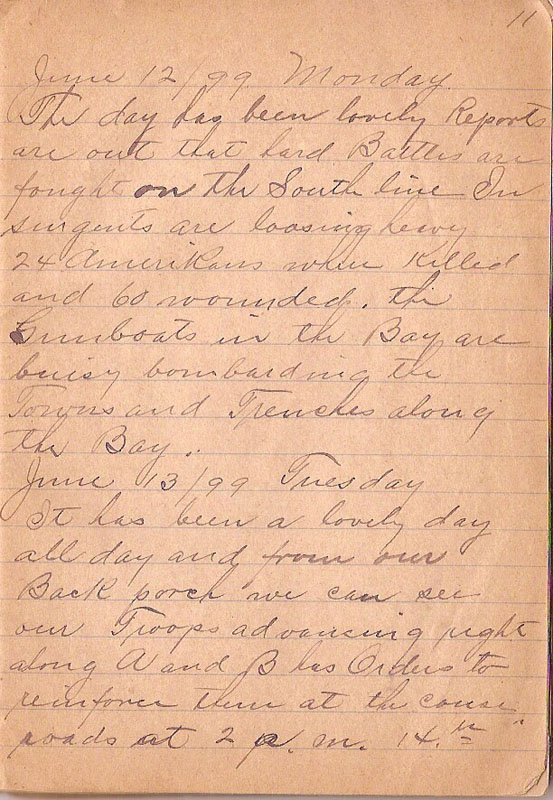 11
June 12/99 Monday.
The day has been lovely Reports
are out that hard Battles are
fought on the South line In
surgents are loosing hewy
24 Amerikans where Killed
and 60 wounded. the
Gunboats in the Bay are
buisy bombarding the
Towns and Trenches along
the Bay.
June 13/99 Tuesday
It has been a lovely day
all day and from our
Back porch we can see
our Troops advancing right
along A and B has Orders to
reinforce them at the
roads at 2 a. m. 14.th